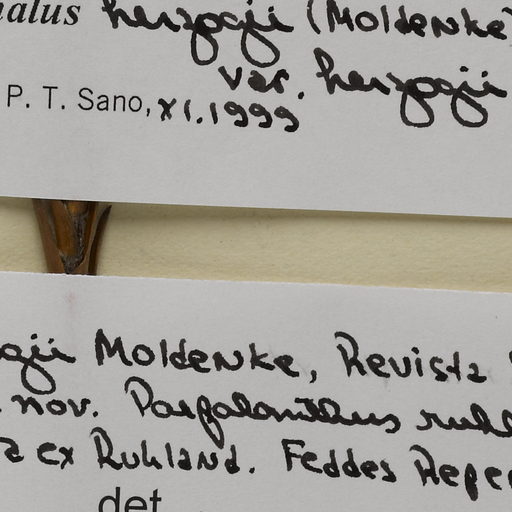 alus herzogii (Moldenke)
var. herzogii
P. T. Sano, XI.1999
ogii Moldenke, Revista
nov. Paepalanthus ruhl
ex Ruhland. Feddes Reper
det.